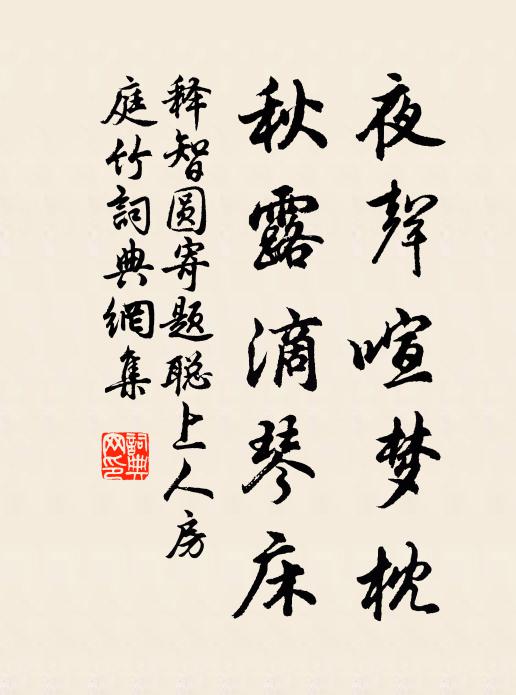 夜聲喧梦枕
秋露滴琴床
释智圆寄题聪上人房
庭竹詞典網集
詞典网印